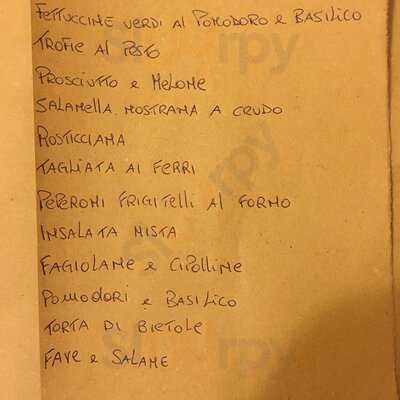 Fettuccine verdi al Pomodoro e Basilico
Trofie al Pesto
Prosciutto e Melone
Salamella nostrana a crudo
Rosticciana
Tagliata ai ferri
Peperoni frigitelli al forno
Insalata mista
Fagiolane e Cipolline
Pomodori e Basilico
Torta di Bietole
Fave e Salame